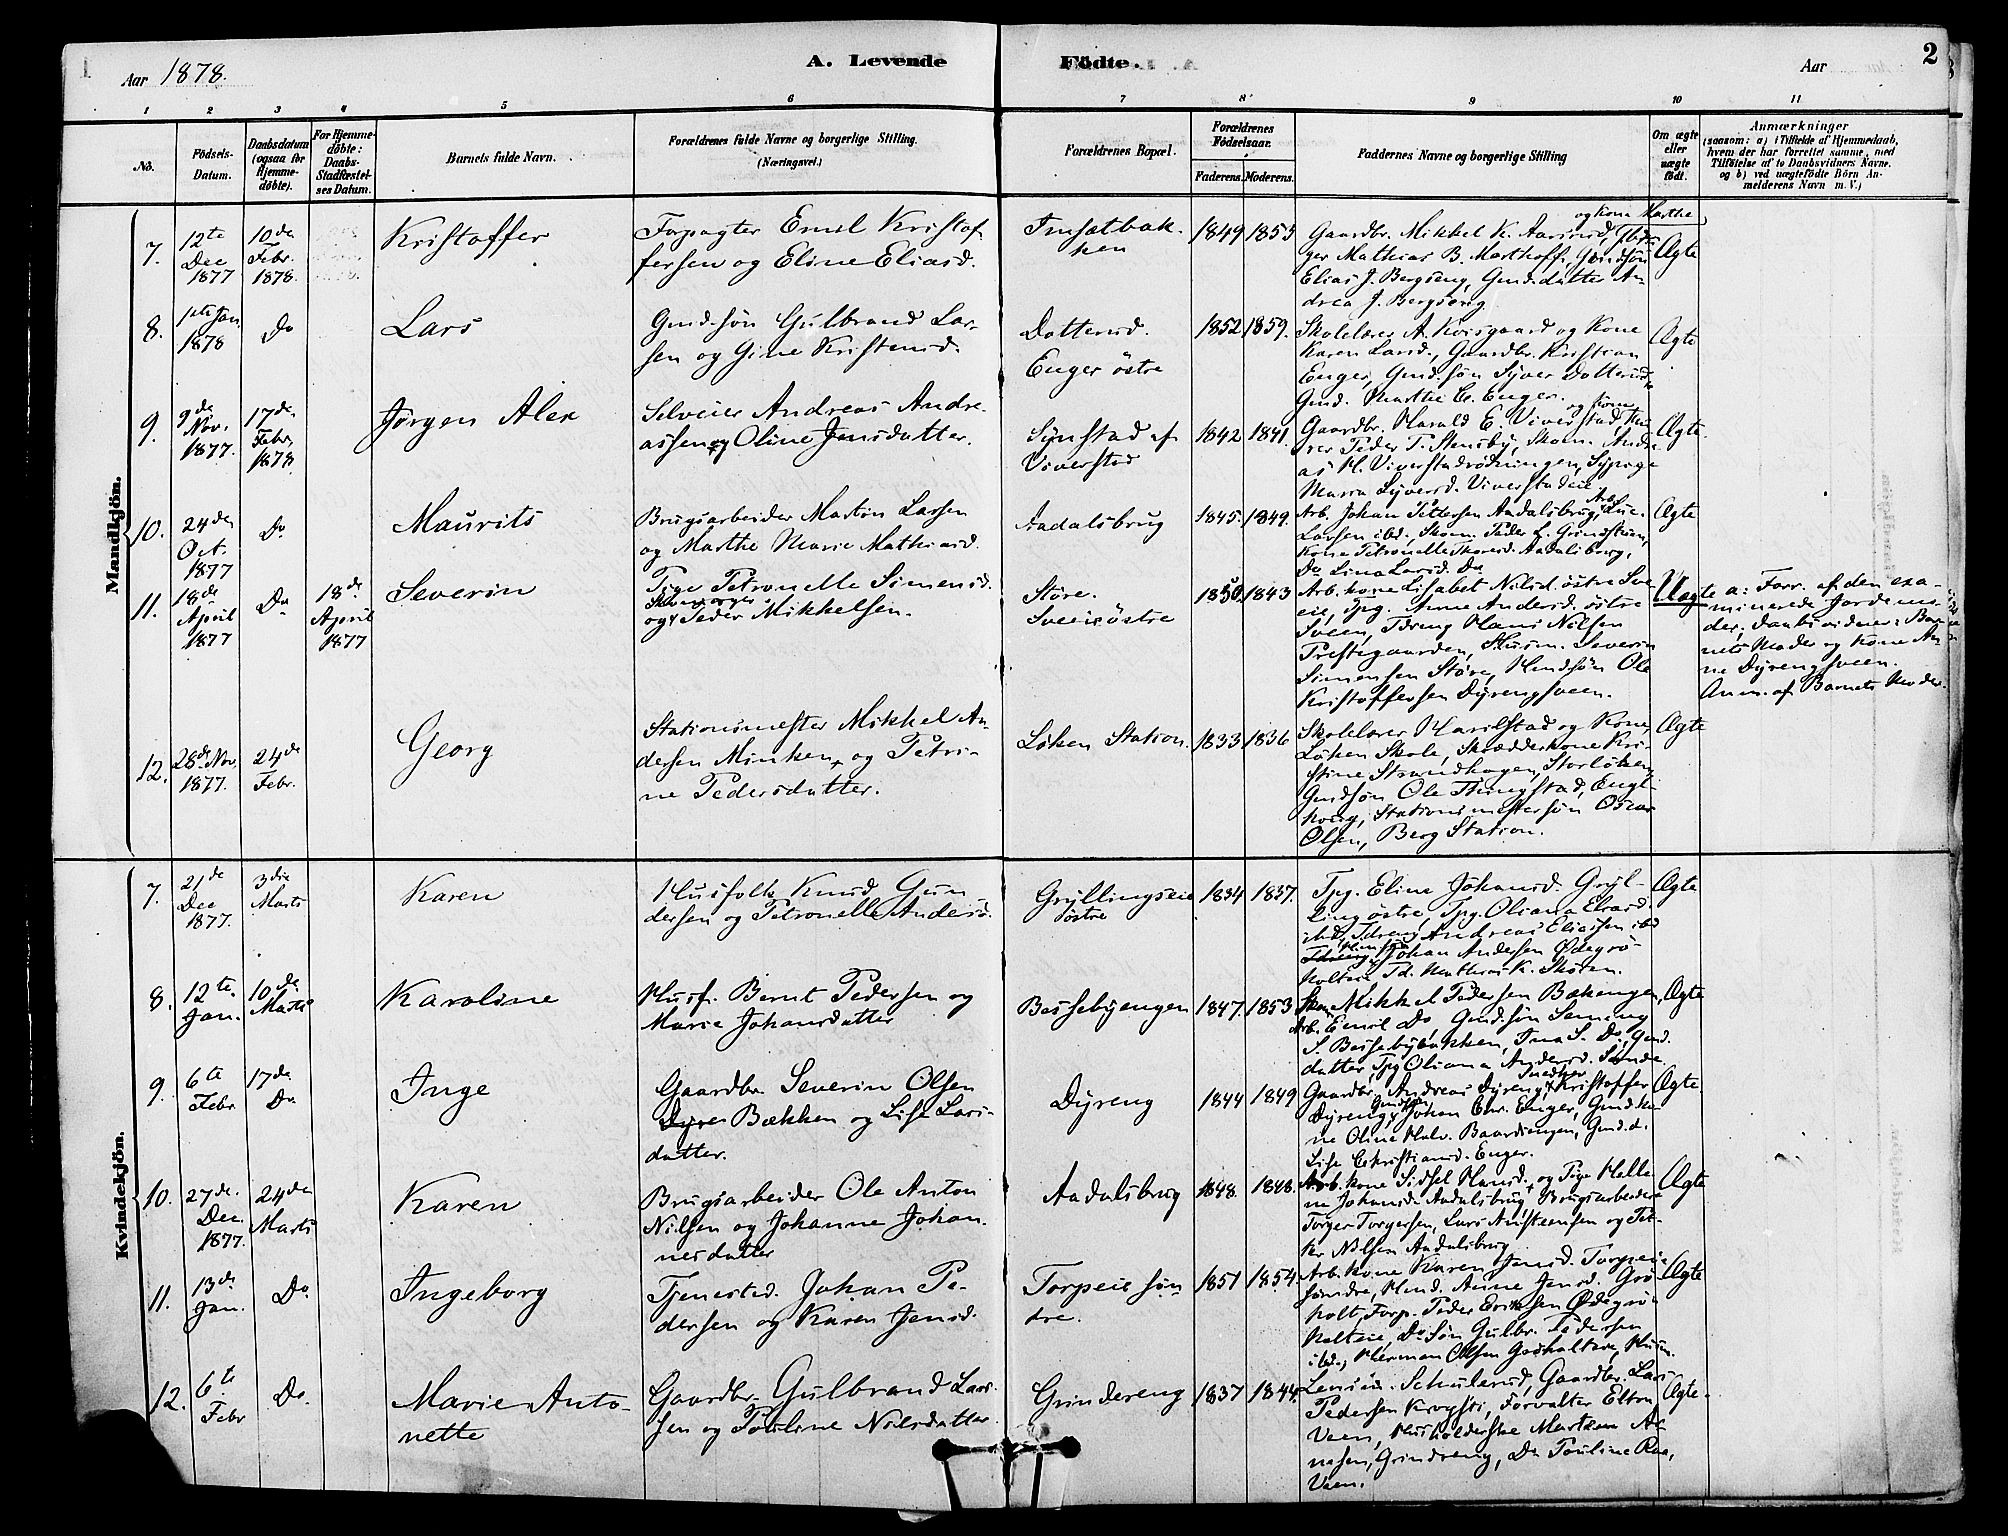 Aar 1878.
A. Levende
Födte.
Aar
2
1 2 3 4 5 6 7 8 9 10 11
No.
Födsels-
Datum.
Daabsdatum
(ogsaa for
Hjemme-
döbte).
For Hjemme-
döbte:
Daabs-
Stadfæstel-
ses Datum.
Barnets fulde Navn.
Forældrenes fulde Navne og borgerlige Stilling.
(Næringsvei.)
Forældrenes Bopæl.
Forældrenes
Födselsaar.
Faderens. Moderens.
Faddernes Navne og borgerlige Stilling
Om ægte
eller
uægte
födt.
Anmærkninger
(saasom: a) i Tilfælde af Hjemmedaab,
hvem der har forrettet samme, med
Tilföielse af to Daabsvidners Navne,
og b) ved uægtefödte Börn An-
melderens Navn m. V.)
Mandkjön.
7.
12te
Dec
1877
10de
Febr.
1878.
Kristoffer
Forpagter Emil Kristof-
fersen og Eline Eliasd.
1849
1853
og Kone Marthe
Gaardbr. Mikkel K.
ger Mathias B.
Elias J. Bergseng, Gmd.datter An-
drea J. Bergseng
Ægte
8.
1ste Jan.
1878
Do
Lars
Gmd.søn Gulbrand Lar-
sen og Gine Kristensd.
Dotterud.
Enger östre
1852
1859.
Skolelærer A. Kvisgaard og Kone
Karen Larsd., Gaardbr. Kristian
Enger, Gmd.søn Syver Dotterud,
Gmd. Marthe C. Enger.
Ægte
9.
9de
Nov.
1877.
17de
Febr.
1878.
Jørgen Alex
Selveier Andreas Andre-
assen og Oline Jensdatter.
Synstad af
Viverstad
1842
1841.
og Kone
Gaardbr. Harald E. Viverstad,
Peder P. Stensby, Skom. Andre-
as H. Viverstadrødningen, Sypige
Maria Syversd. Viverstadeie
Ægte.
10.
24de
Oct.
1877
Do
Maurits
Brugsarbeider Martin Larsen
og Marthe Marie Mathiasd.
Aadalsbrug
1845.
1849.
Arb. Johan Pettersen Aadalsbrug, Arb.
Larsen ibd, Skom. Peder L. Grindstuen,
Kone Petronelle Aadalsbrug,
Do Lina Larsd. Do
Ægte
11.
18de
April
1877
Do
18de
April
1877
Severin
Pige Petronelle Simensd.
og Peder Mikkelsen.
Støre.
Sveeie östre
1850.
1843
Arb.kone Lisabet Nilsd. østre Sve-
eie, Tpg. Anne Andersd. østre
Sveen, Tdreng Hans Nilsen
Prestegaarden, Husm. Severin
Simensen Støre, Hmdsøn Ole
Kristoffersen Dyrengsveen.
Uægte
a: Forr. af den exa-
minerede Jordemo-
der. Daabsvidner: Bar-
nets Moder og Kone An-
ne Dyrengsveen.
Anm. af Barnets Moder.
12.
28de Nov.
1877.
24de
Febr.
Georg
Stationsmester Mikkel An-
dersen Minken, og Petri-
ne Pedersdatter.
Løken Station.
1833
1836
Skolelærer Harilstad og Kone,
Løken Skole, Skrædderkone Kri-
stine Strandhagen, Storløken,
Gmdsøn Ole Thingstad, Engl-
houg, Stationsmestersøn Oscar
Olsen, Berg Station.
Ægte
Kvindekjön.
7.
21de
Dec
1877.
3die
Marts
Karen
Husfolk Knud Gun-
dersen og Petronelle Andersd.
Gryllingseie
östre
1834
1837.
Tpg. Eline Johansd. Gryl-
ling østre, Tpg. Oliana Eliasd.
ibd, Tdreng Andreas Eliassen ibd
Johan Andersen Ødegrø-
holteie Td. Mathias K. Skøien.
Ægte
8.
12te.
Jan.
10de
Marts
Karoline
Husf. Bernt Pedersen og
Marie Johansdatter
Bessebyengen
1847.
1853
Mikkel Pedersen Bækengen,
Arb. Emil Do, Gmd.søn
S. Bessebybakken, Ina S. Do, Gmd.
datter Tpg Oliana Andersd. Sønde
Ægte
9.
6te
Febr
17de
Do
Inge
Gaardbr. Severin Olsen
Bækken og Lise Lars-
datter.
Dyreng
1844
1849
Gaardbr. Andreas Dyreng, Kristoffer
Dyreng, Gmdsøn Johan Chr. Enger, Gmd.ko-
ne Oline Halv. Baardsengen, Gmd.d.
Lise Christiansd. Enger.
Ægte.
10.
27de.
Dec.
1877.
24de
Marts
Karen
Brugsarbeider Ole Anton
Nilsen og Johanne Johan-
nesdatter
Aadalsbrug
1848.
1848.
Arb.kone Sidsel Hansd. og Pige Helle-
ne Johansd. Aadalsbrug, Brugsarbeidere
Torger Torgersen, Lars Anstensen og Pet-
ter Nilsen Aadalsbrug
Ægte
11.
13de
Jan.
Do.
Ingeborg
Tjenested. Johan Pe-
dersen og Karen Jensd.
Torpeie søn-
dre.
1851
1854.
Arb.kone Karen Jensd. Torpeie
søndre, Hmd. Anne Jensd. Grø-
holt, Forp. Peder Eriksen Ødegrø-
holteie, Do Søn Gulbr. Pedersen
ibd., Herman Olsen
Ægte
12.
6te
Febr
Do.
Marie Anto-
nette
Gaardbr. Gulbrand Lars-
sen og Pauline Nilsdatter
Grindereng
1837
1844.
Schulerud, Gaardbr. Lars
Pedersen Forvalter Elton
Veen, Husholderske
nesen, Grindreng, Do Pouline
Veen.
Ægte.